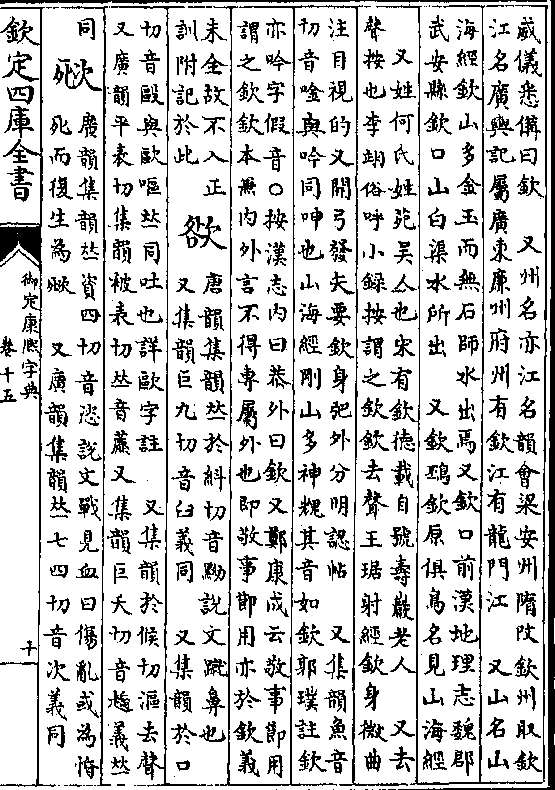 威儀悉備曰欽　又州名亦江名韻會梁安州隋改欽州取欽
江名廣輿記屬廣東廉州府州有欽江有龍門江　又山名山
海經欽山多金玉而無石師水出焉又欽口前漢地理志魏郡
武安縣欽口山白渠水所出　又欽䲹欽原俱鳥名見山海經
又姓何氏姓苑吴人也宋有欽德載自號壽巖老人　又去
聲按也李翊俗呼小録按謂之欽欽去聲王琚射經欽身微曲
注目視的又開弓發矢要欽身弝外分明認帖　又集韻魚音
切音唫與吟同呻也山海經剛山多神䰠其音如欽郭璞註欽
亦吟字假音○按漢志内曰恭外曰欽又鄭康成云敬事節用
謂之欽欽本兼内外言不得專屬外也即敬事節用亦於欽義
未全故不入正
訓附記於此
㰶
唐韻集韻𠀤於糾切音黝說文蹴鼻也
又集韻巨九切音臼義同　又集韻於口
切音毆與歐嘔𠀤同吐也詳歐字註　又集韻於候切漚去聲
又廣韻平表切集韻被表切𠀤音藨又集韻巨夭切音義𠀤
同
㰷
廣韻集韻𠀤資四切音恣說文戰見血曰傷亂或為惛
死而復生為㰷　又廣韻集韻𠀤七四切音次義同
欽定四庫全書
御定康熙字典
卷十五
十